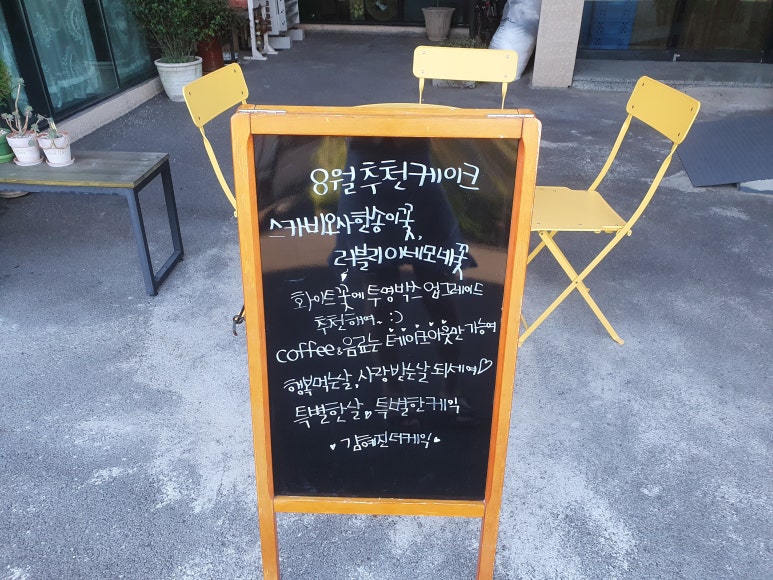 8월 추천 케이크
스카비오사 한송이꽃,
러블리 아네모네꽃
화이트 꽃에 투명박스 업그레이드
추천해여~ :)
coffee&음료는 테이크아웃만 가능여
행복먹는날, 사랑받는날 되세여♡
특별한날, 특별한케익
김혜진더케익